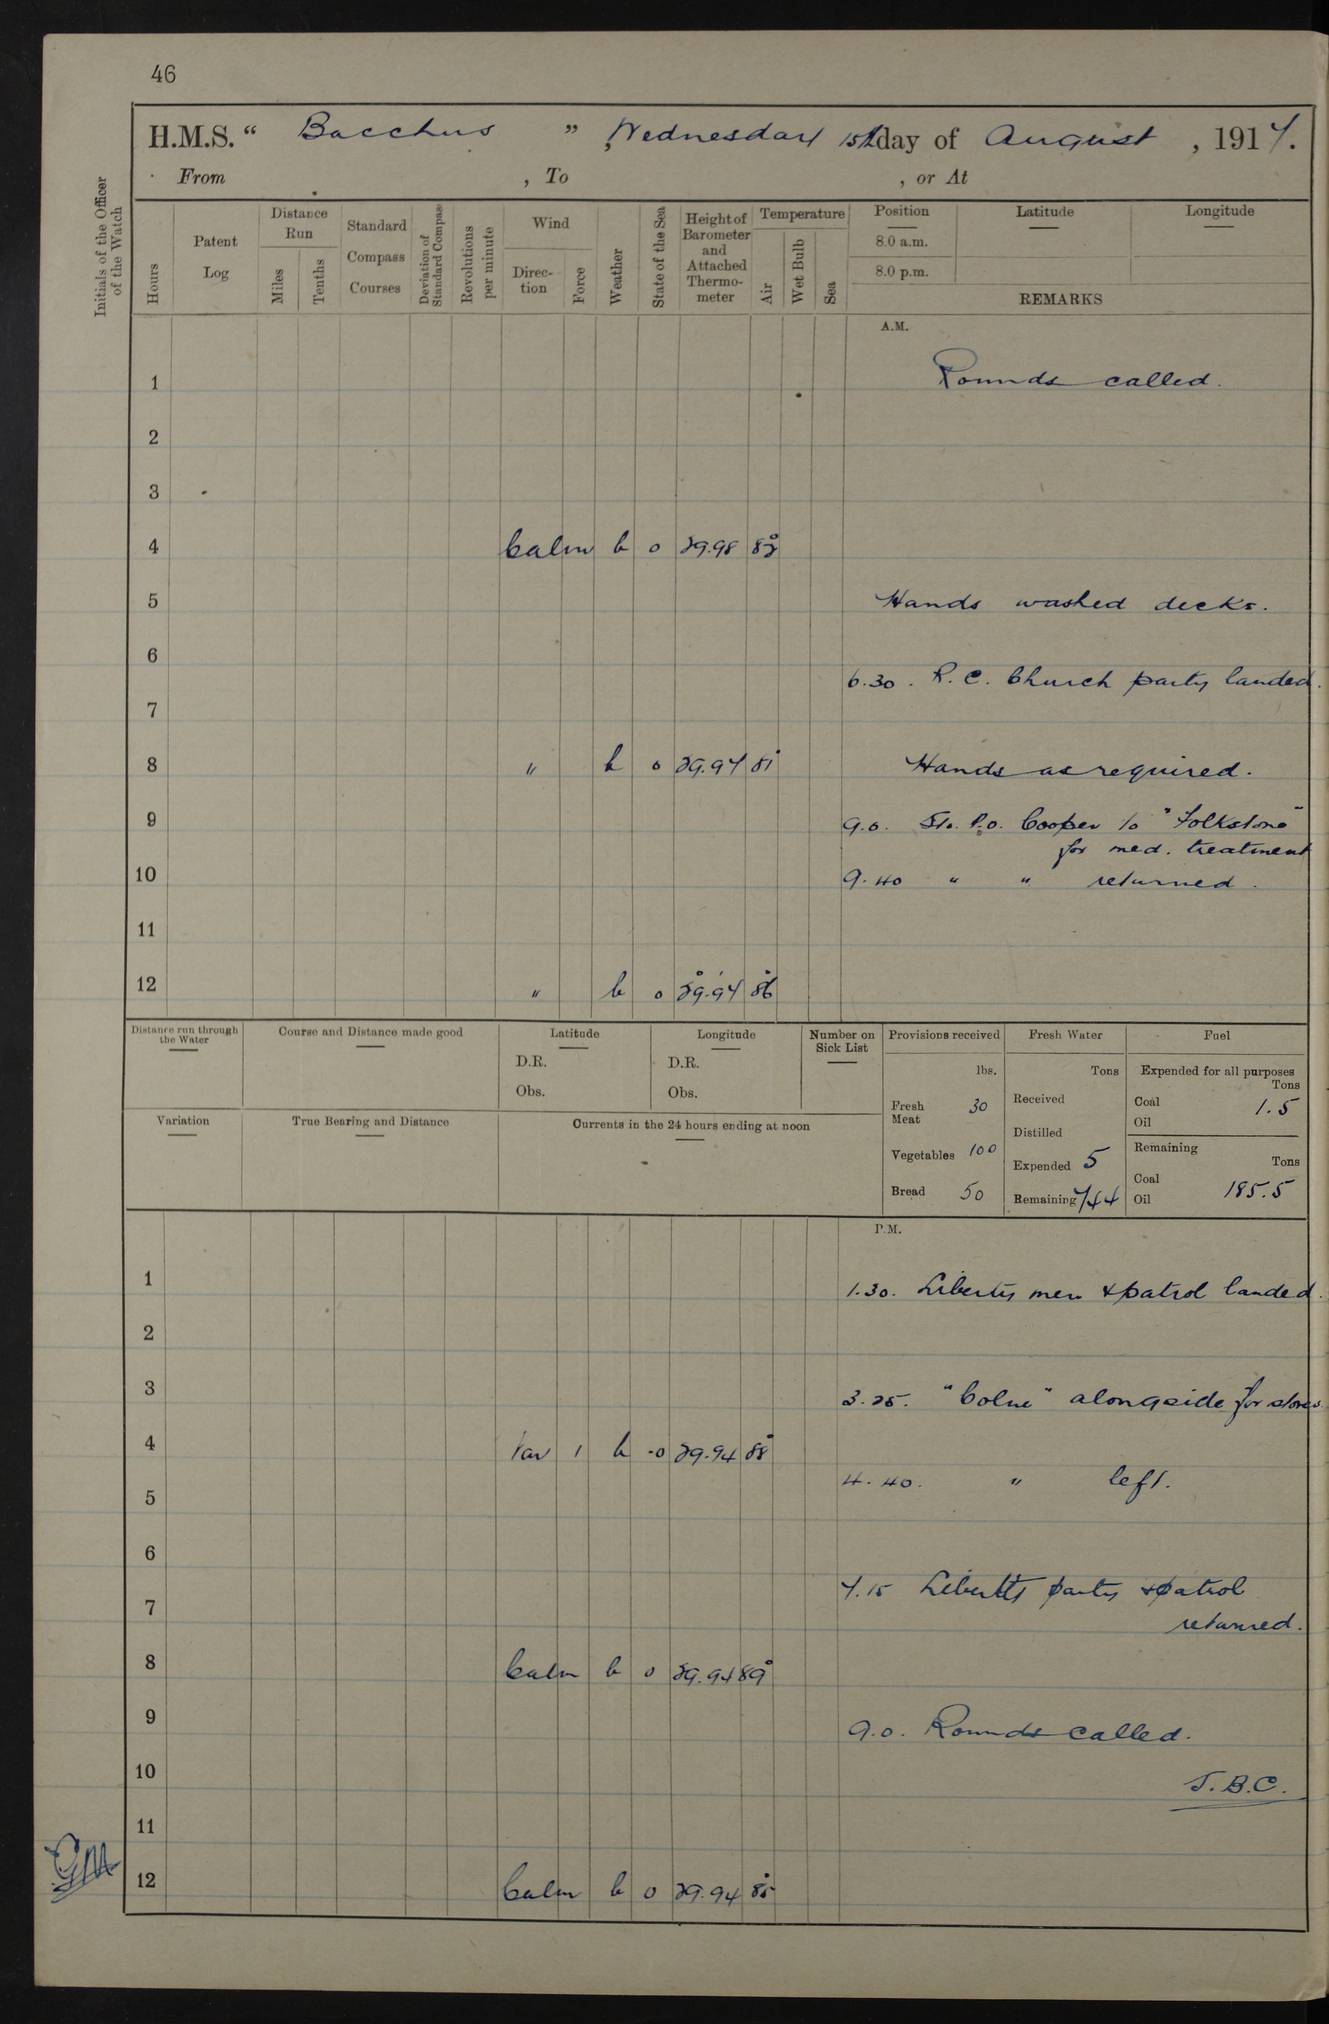 46
H.M.S. “ Bacchus ” , Wednesday 15th day of August , 1917.
From , To , or At
Initials of the Officer of the Watch
Hours
Patent Log
Distance Run
Miles
Tenths
Standard Compass Courses
Deviation of Standard Compass
Revolutions per minute
Wind
Direc-tion
Force
Weather
State of the Sea
Height of Barometer and Attached Thermo-meter
Temperature
Air
Wet Bulb
Sea
Position Latitude Longitude
8.0 a.m.
8.0 p.m.
REMARKS
A.M.
1 Rounds called.
2
3
4 Calm b 0 29.98 82°
5 Hands washed decks.
6
6.30. R.C. Church party landed.
7
8 " b 0 29.97 81° Hands as required.
9 9.0. Sto. P.O. Cooper to "Folkstone"
for med. treatment
10 9.40 " " returned.
11
12 " b 0 29.97 86°
Distance run through the Water
Course and Distance made good
Latitude
D.R.
Obs.
Longitude
D.R.
Obs.
Number on Sick List
Variation
True Bearing and Distance
Currents in the 24 hours ending at noon
Provisions received
lbs.
Fresh Meat 30
Vegetables 100
Bread 50
Fresh Water
Tons
Received
Distilled
Expended 5
Remaining 744
Fuel
Expended for all purposes
Tons
Coal 1.5
Oil
Remaining
Tons
Coal 185.5
Oil
P.M.
1 1.30. Liberty men & patrol landed.
2
3 3.25. "Colne" alongside for stores.
4 Var 1 b 0 29.94 88°
4.40. " left.
5
6
7.15 Liberty party & patrol
7 returned.
8 Calm b 0 29.94 89°
9 9.0. Rounds called.
10 J.B.C.
11
12 Calm b 0 29.94 85°